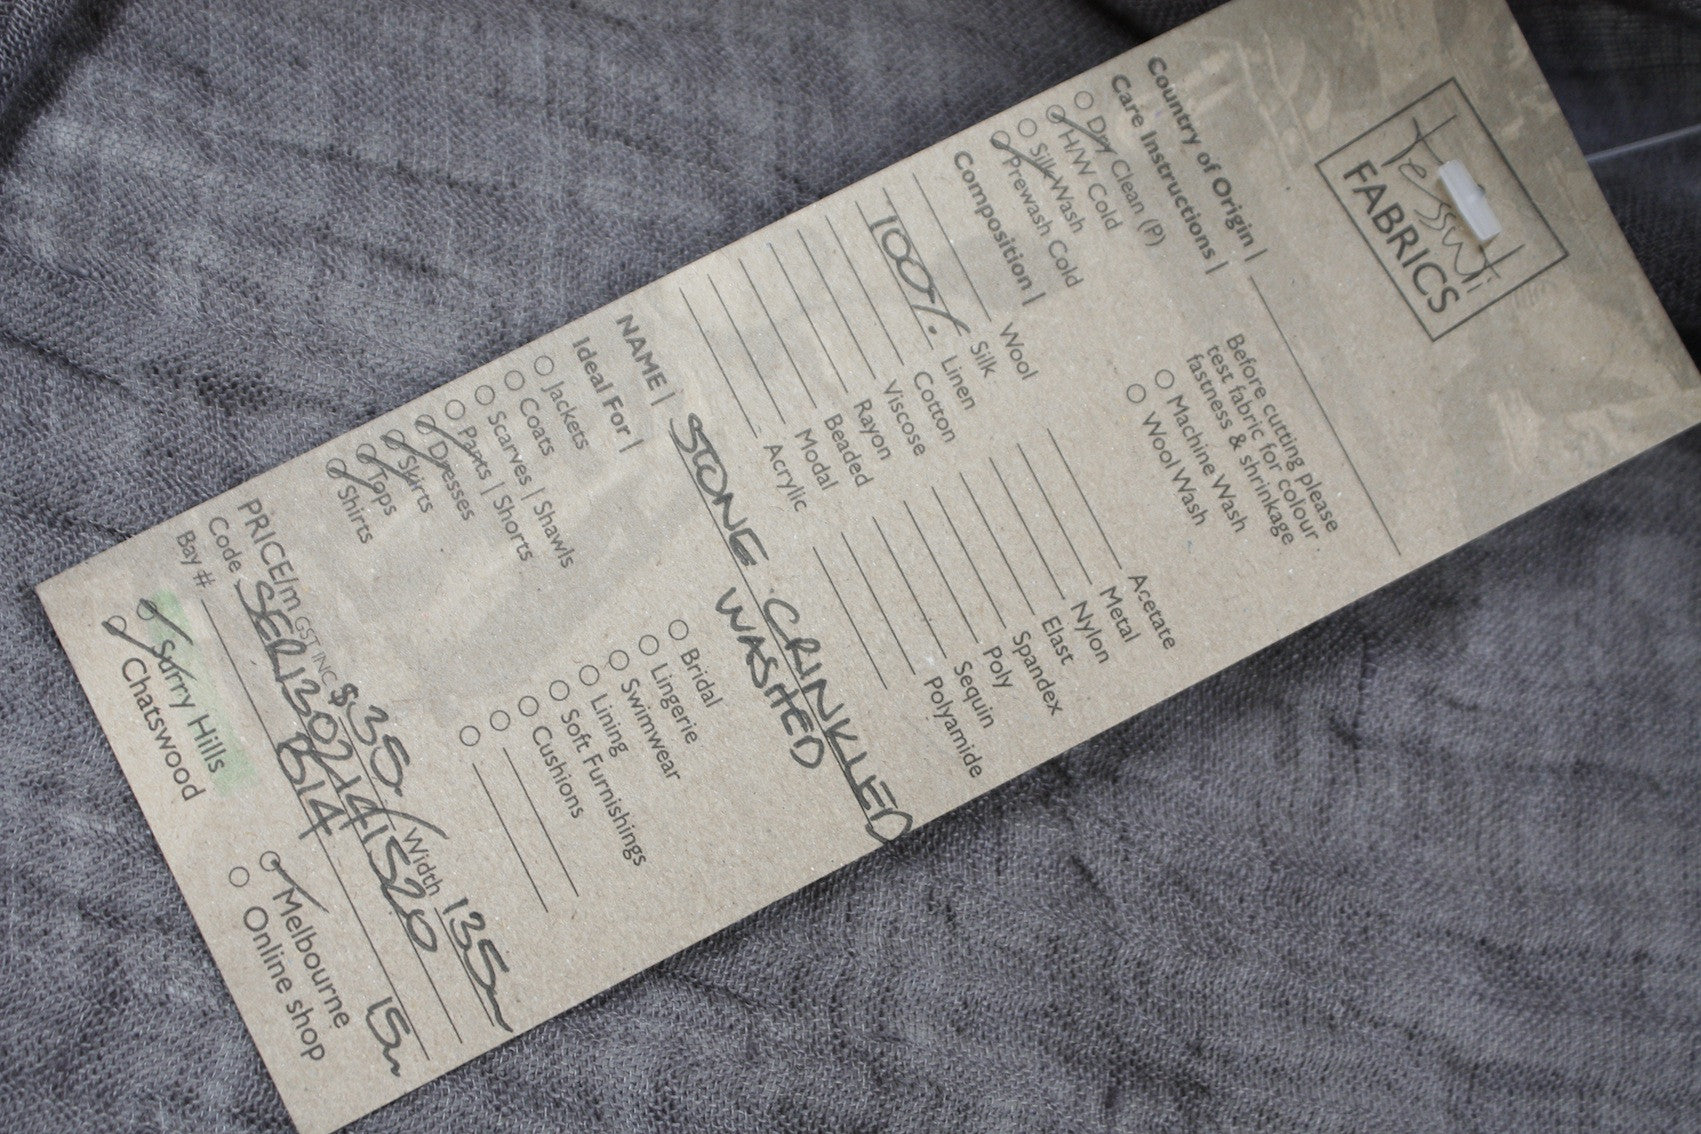 Tessuti
FABRICS
Country of Origin |
Care Instructions |
Before cutting please
test fabric for colour
fastness & shrinkage
Dry Clean (P)
H/W Cold
Silk Wash
Prewash Cold
Machine Wash
Wool Wash
Composition |
Wool
Silk
100% Linen
Cotton
Viscose
Rayon
Beaded
Modal
Acrylic
Acetate
Metal
Nylon
Elast
Spandex
Poly
Sequin
Polyamide
NAME | STONE CRINKLED
WASHED
Ideal For |
Jackets
Coats
Scarves | Shawls
Pants | Shorts
Dresses
Skirts
Tops
Shirts
Bridal
Lingerie
Swimwear
Lining
Soft Furnishings
Cushions
PRICE/m GST INC $35 / Width 135
Code SER1302141520
Bay # B14 15m
Surry Hills
Chatswood
Melbourne
Online shop